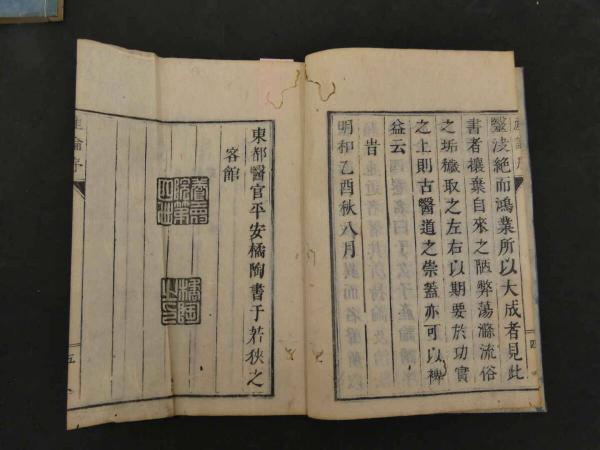 絕而鴻業所以大成者見此
書者攘棄自來之陋弊蕩滌流俗
之垢穢取之左右以期要於功實
之上則古醫道之崇蓋亦可以裨
益云
旹
明和乙酉秋八月
四
東都醫官平安橘陶書于若狹之
客館
橘陶之印
產論序
五